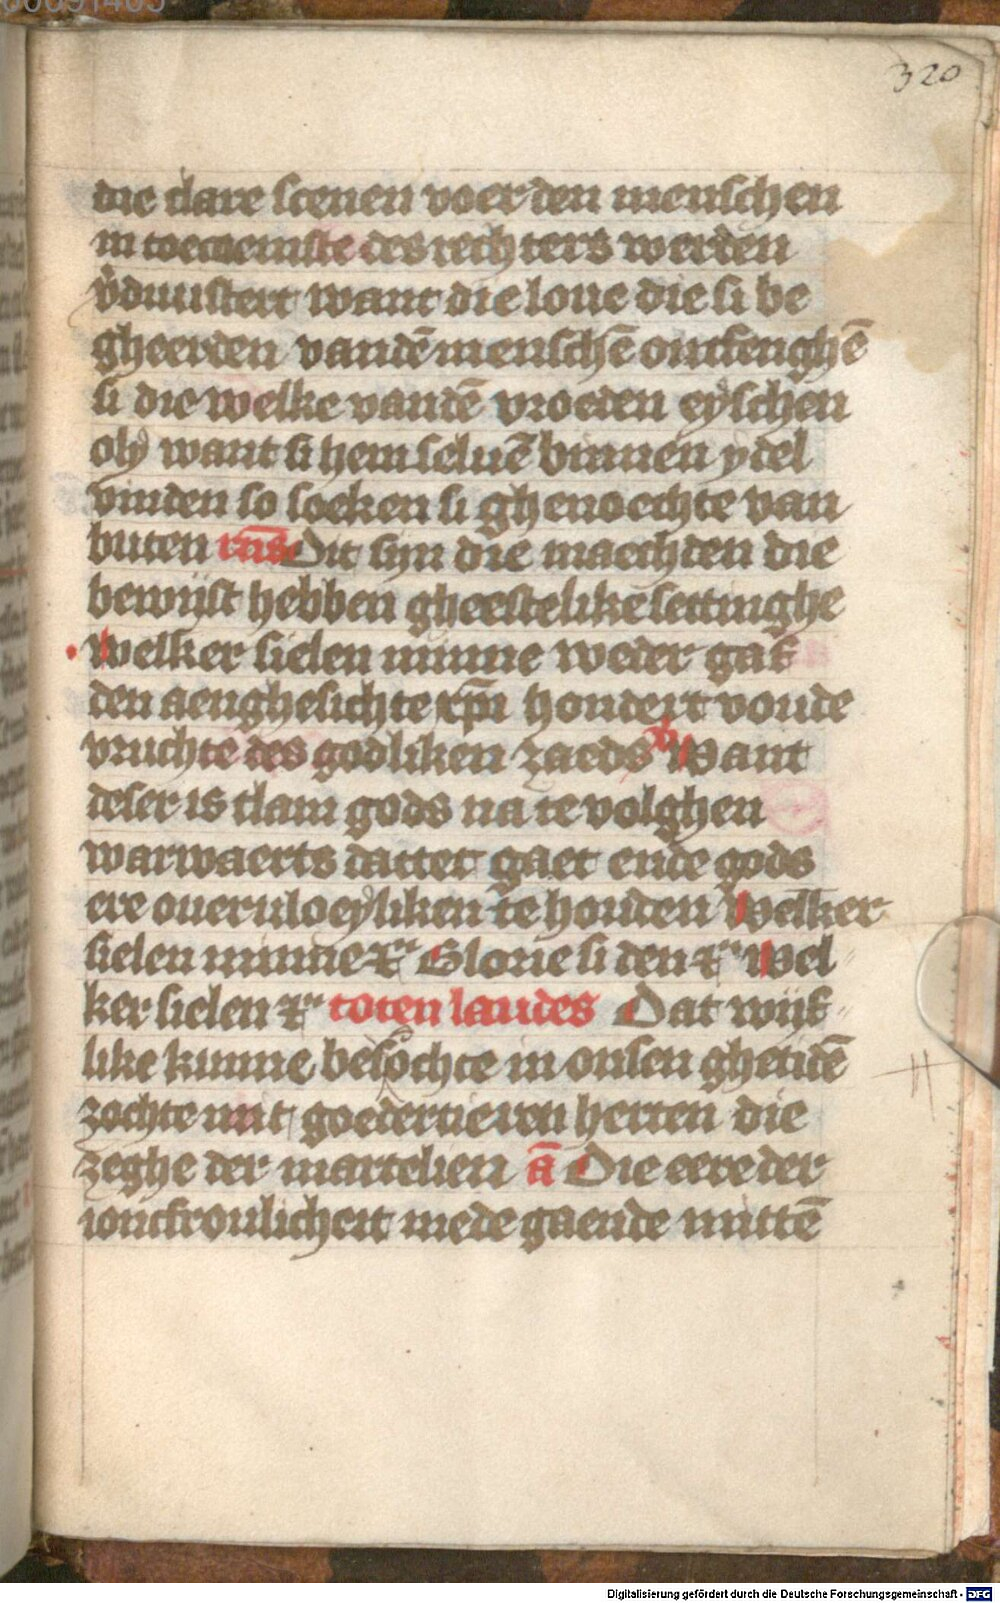 320
die clare scenen voer den menschen
in toecoemste des rechters werden
v̄duustert want die loue die si be
gheerden vandē menschē ontfenghē
si die welke vandē vroeden eyschen
oly want si hem seluē binnen ydel
vinden so soeken si ghenoechte van
buten rn̄s Dit syn die maechden die
bewijst hebben gheestelike settinghe
Welker sielen minne weder gaf
den aenghesichte xp̄i hondert voude
vruchte des godliken zaeds v̄ Want
deser is tlam gods na te volghen
warwaerts dattet gaet ende gods
ere oueruloeyliken te houden Welker
sielen minne ⁊c Glorie si den ⁊c Wel
ker sielen ⁊c toten laudes Dat wijf
like kunne besochte in onsen ghetidē
zochte mit goedertieren herten die
zeghe der martelien ā Die eere der
ioncfroulicheit mede gaende mittē
Digitalisierung gefördert durch die Deutsche Forschungsgemeinschaft - DFG